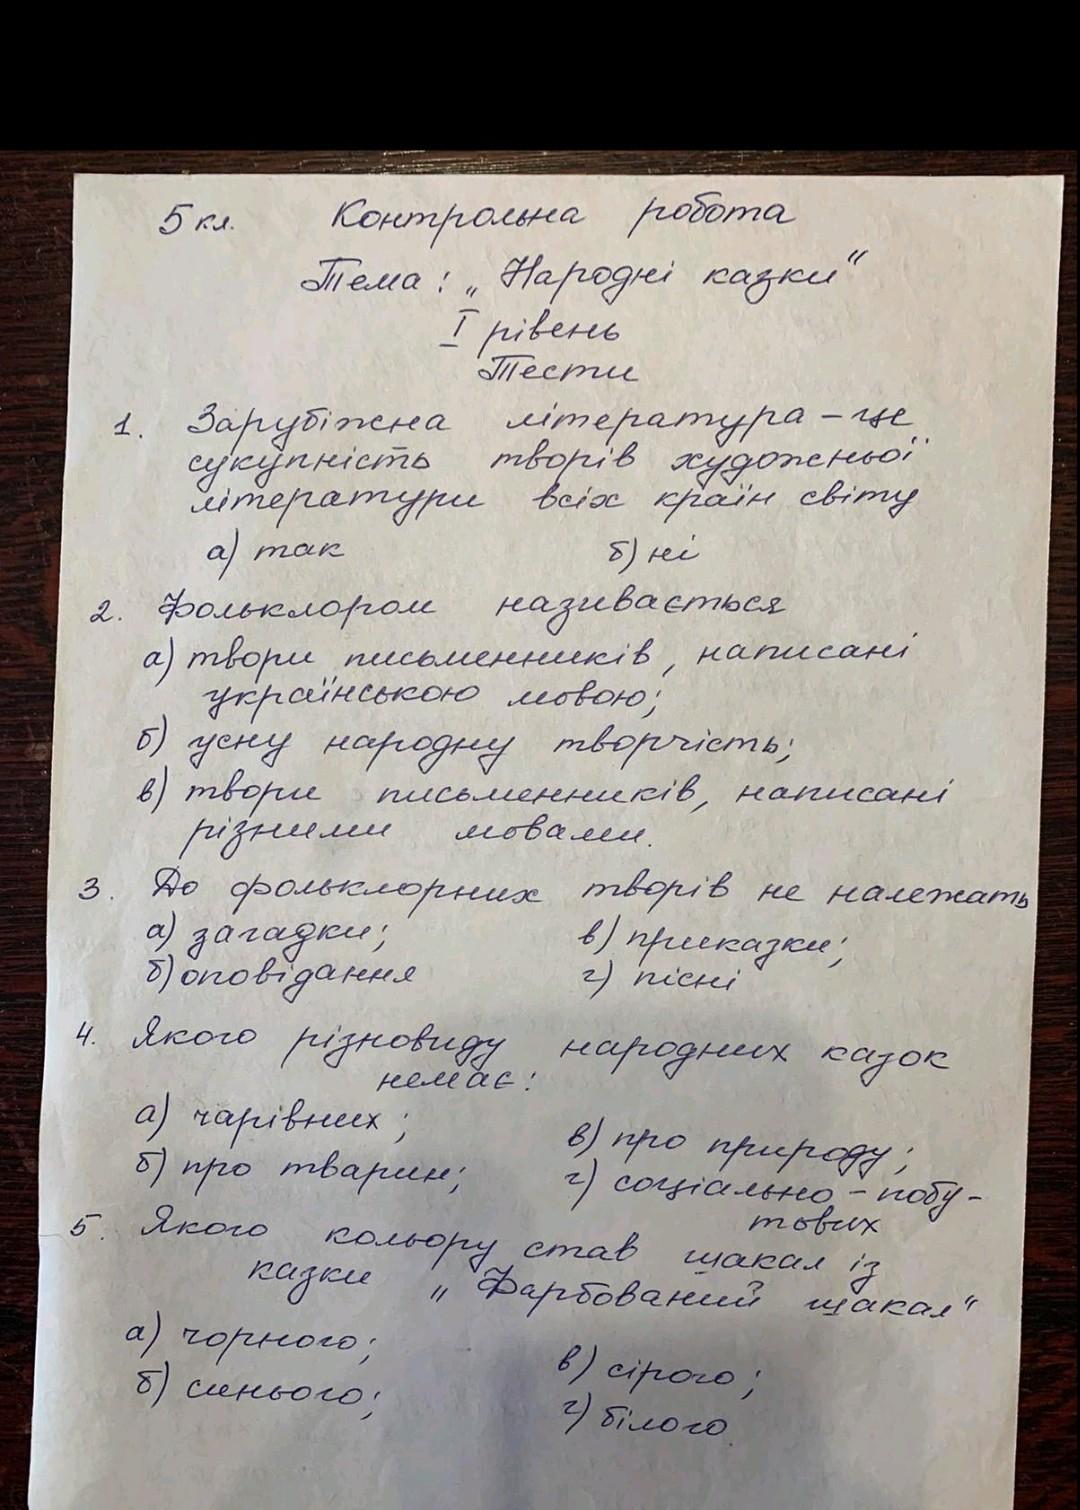 5 кл. Контрольна робота
Тема: „Народні казки“
I рівень
Тести
1. Зарубіжна література – це
сукупність творів художньої
літератури всіх країн світу
а) так б) ні
2. Фольклором називається
а) твори письменників, написані
українською мовою;
б) усну народну творчість;
в) твори письменників, написані
різними мовами.
3. До фольклорних творів не належать
а) загадки; в) приказки;
б) оповідання г) пісні
4. Якого різновиду народних казок
немає:
а) чарівних; в) про природу;
б) про тварин; г) соціально – побу-
тових
5. Якого кольору став шакал із
казки „Фарбований шакал“
а) чорного; в) сірого;
б) синього; г) білого